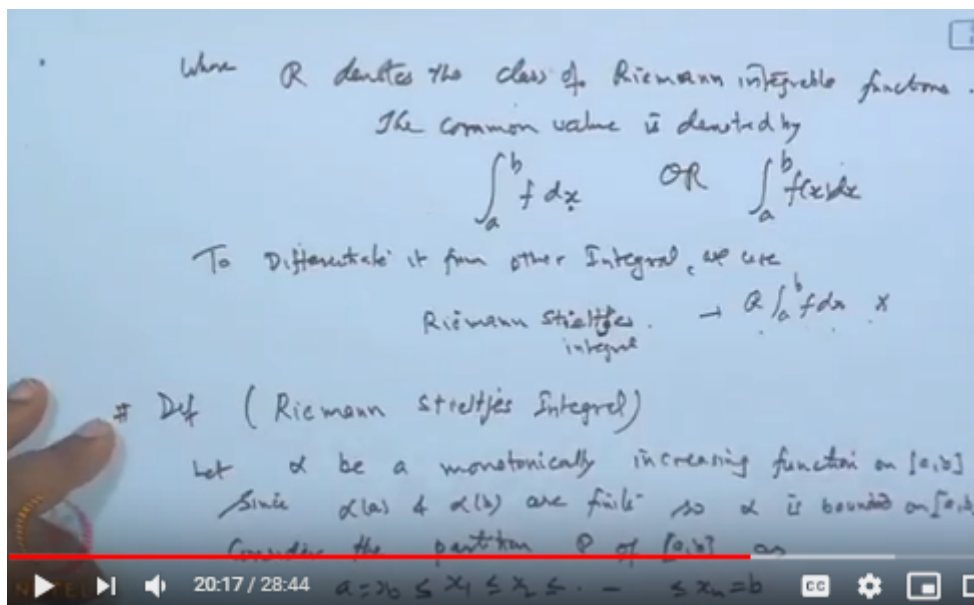 Where R denotes the class of Riemann integrable functions.
The common value is denoted by
∫_a^b f dx OR ∫_a^b f(x)dx
To Differentiate it from other Integral, we use
Riemann Stieltjes → R∫_a^b f dx x
integral
# Def (Riemann Stieltjes Integral)
Let α be a monotonically increasing function on [a,b]
Since α(a) & α(b) are finite so α is bounded on [a,b
Consider the partition P of [a,b] as
20:17 / 28:44 a=x₀ ≤ x₁ ≤ x₂ ≤ . – ≤ xₙ=b CC